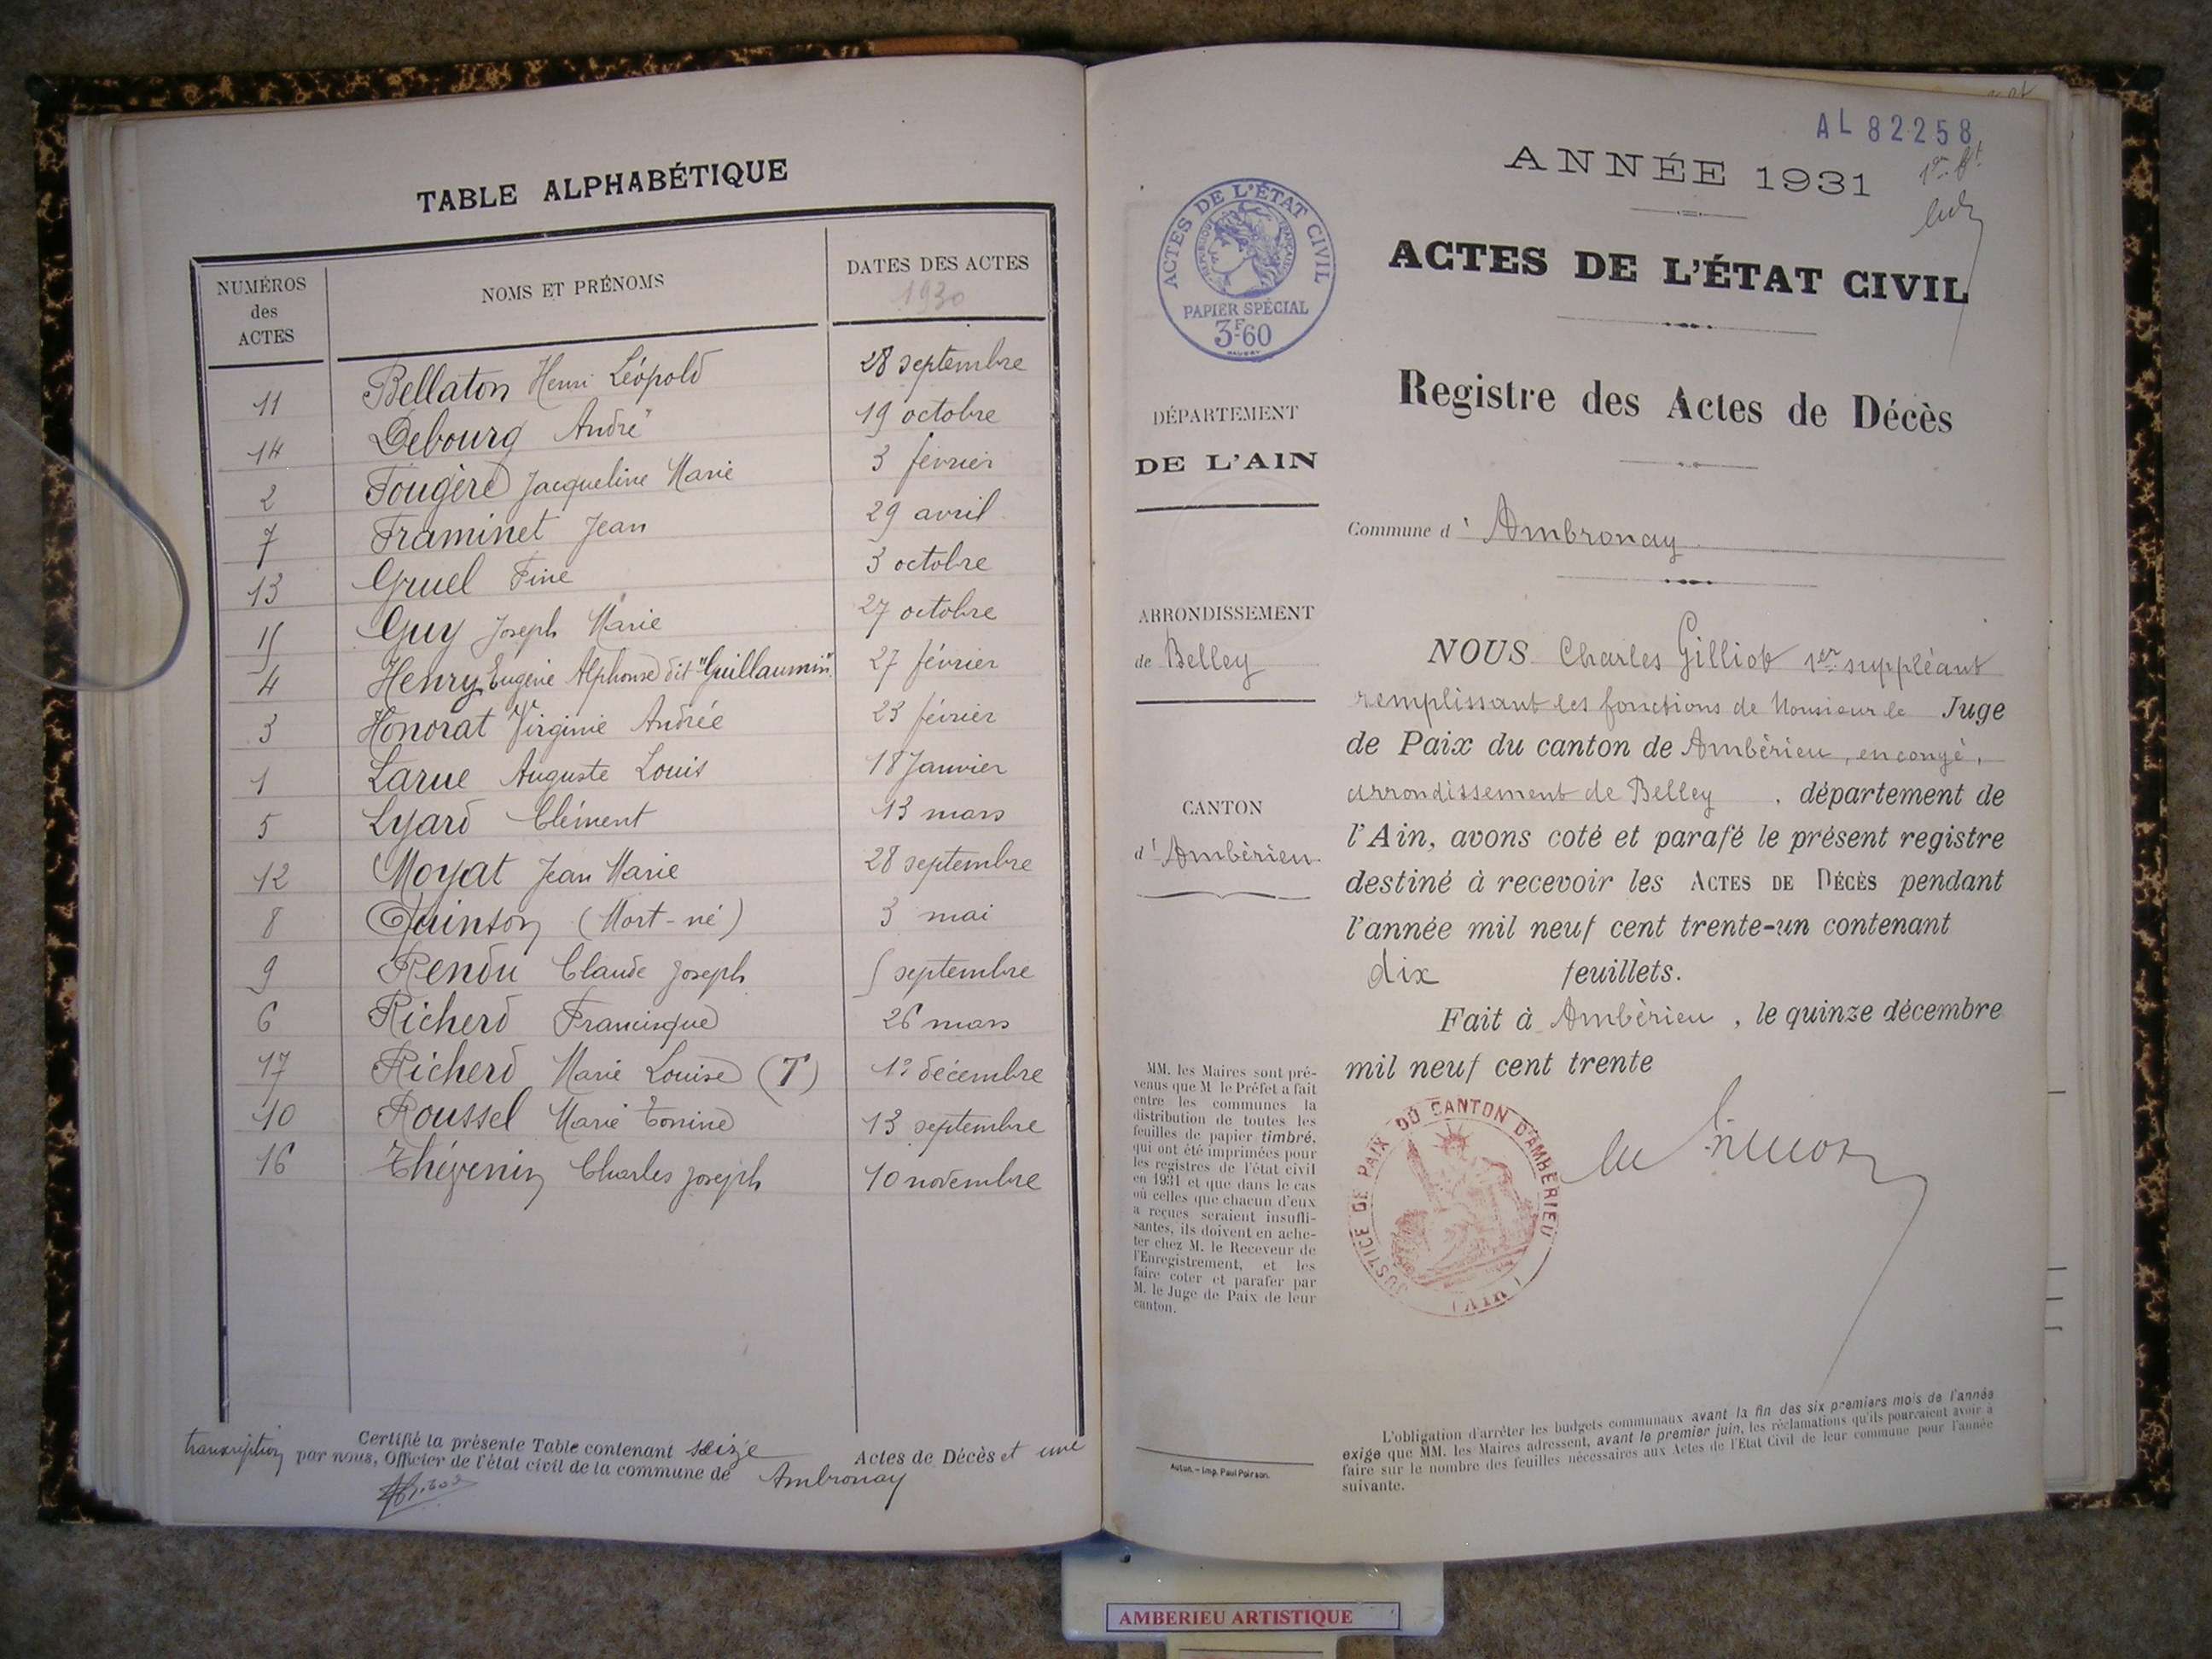 TABLE ALPHABÉTIQUE
NUMÉROS des ACTES
NOMS ET PRÉNOMS
DATES DES ACTES
1930
11 Bellaton Henri Léopold 28 septembre
14 Debourg André 19 octobre
2 Fougère Jacqueline Marie 3 février
7 Framinet Jean 29 avril
13 Gruel Fine 3 octobre
15 Guy Joseph Marie 27 octobre
4 Henry Eugène Alphonse dit "Guillaumin" 27 février
3 Honorat Virginie Andrée 23 février
1 Larue Auguste Louis 18 Janvier
5 Lyard Clément 13 mars
12 Moyat Jean Marie 28 septembre
8 Quinson (Mort-né) 3 mai
9 Rendu Claude Joseph 5 septembre
6 Richerd Francisque 26 mars
17 Richerd Marie Louise (T) 1º décembre
10 Roussel Marie Tonine 13 septembre
16 Thévenin Charles Joseph 10 novembre
Certifié la présente Table contenant seize Actes de Décès et une
transcription par nous, Officier de l'état civil de la commune de Ambronay
AL 82258
ANNÉE 1931
1er ft
ACTES DE L'ÉTAT CIVIL
RÉPUBLIQUE FRANÇAISE
PAPIER SPÉCIAL
3F60
ACTES DE L'ÉTAT CIVIL
Registre des Actes de Décès
DÉPARTEMENT
DE L'AIN
Commune d' Ambronay
ARRONDISSEMENT
de Belley
CANTON
d' Ambérieu
NOUS Charles Gilliot 1er suppléant
remplissant les fonctions de Monsieur le Juge
de Paix du canton de Ambérieu, en congé,
arrondissement de Belley, département de
l'Ain, avons coté et parafé le présent registre
destiné à recevoir les ACTES DE DÉCÈS pendant
l'année mil neuf cent trente-un contenant
dix feuillets.
Fait à Ambérieu, le quinze décembre
mil neuf cent trente
MM. les Maires sont pré-
venus que M le Préfet a fait
entre les communes la
distribution de toutes les
feuilles de papier timbré,
qui ont été imprimées pour
les registres de l'état civil
en 1931 et que dans le cas
où celles que chacun d'eux
a reçues seraient insuffi-
santes, ils doivent en ache-
ter chez M. le Receveur de
l'Enregistrement, et les
faire coter et parafer par
M. le Juge de Paix de leur
canton.
JUSTICE DE PAIX DU CANTON D'AMBÉRIEU
(AIN)
Autun. – Imp. Paul Poirson.
L'obligation d'arrêter les budgets communaux avant la fin des six premiers mois de l'année
exige que MM. les Maires adressent, avant le premier juin, les réclamations qu'ils pourraient avoir à
faire sur le nombre des feuilles nécessaires aux Actes de l'Etat Civil de leur commune pour l'année
suivante.
AMBERIEU ARTISTIQUE